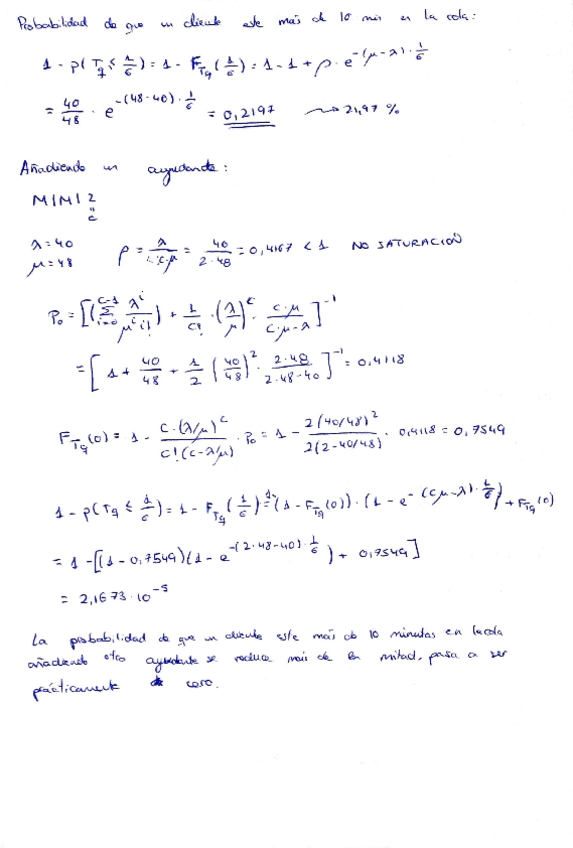 Probabilidad de que un cliente este más de 10 min en la cola:
1 - p(Tq ≤ 1/6) = 1 - F_Tq(1/6) = 1 - 1 + ρ · e^-(μ-λ)·1/6
= 40/48 · e^-(48-40)·1/6 = 0,2197 ⟿ 21,97 %
Añadiendo un ayudante:
M|M|2
"
c
λ = 40
μ = 48
ρ = λ/c·μ = 40/2·48 = 0,4167 < 1 NO SATURACIÓN
P₀ = [(Σ_{i=0}^{c-1} λ^i/μ^i i!) + 1/c! · (λ/μ)^c · c·μ/c·μ-λ]^-1
= [1 + 40/48 + 1/2 (40/48)^2 · 2·48/2·48-40]^-1 = 0,4118
F_Tq(0) = 1 - c·(λ/μ)^c/c!(c-λ/μ) · P₀ = 1 - 2(40/48)^2/2(2-40/48) · 0,4118 = 0,7549
1 - p(Tq ≤ 1/6) = 1 - F_Tq(1/6) = (1 - F_Tq(0)) · (1 - e^-(cμ-λ)·1/6) + F_Tq(0)
= 1 - [(1 - 0,7549)(1 - e^-(2·48-40)·1/6) + 0,7549]
= 2,1673·10^-5
La probabilidad de que un cliente este más de 10 minutos en la cola
añadiendo otro ayudante se reduce más de la mitad, pasa a ser
prácticamente cero.